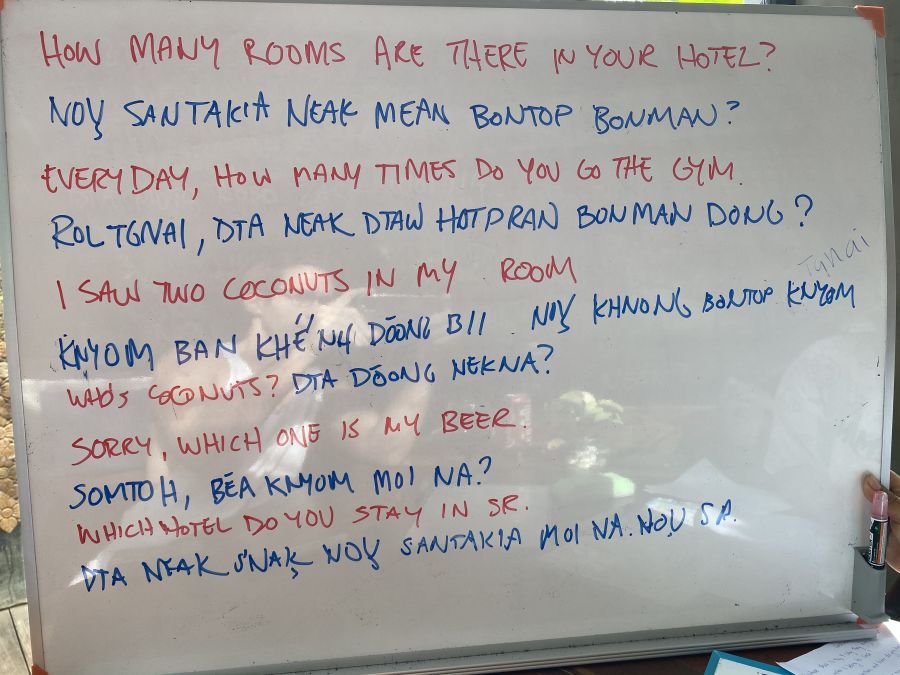 HOW MANY ROOMS ARE THERE IN YOUR HOTEL?
NOŲ SANTAKIA NEAK MEAN BONTOP BONMAN?
EVERYDAY, HOW MANY TIMES DO YOU GO THE GYM.
ROLTGNAI, DTA NEAK DTAW HOTPRAN BONMAN DONG?
Tgnai
I SAW TWO COCONUTS IN MY ROOM
KŅYOM BAN KHĔ'NH DŌONG BII NOŲ KHNONG BONTOP KNYOM
WHO'S COCONUTS? DTA DŌONG NEKNA?
SORRY, WHICH ONE IS MY BEER.
SOMTOH, BĒA KNYOM MOI NA?
WHICH HOTEL DO YOU STAY IN SR.
DTA NEAK S'NAĶ NOŲ SANTAKIA MOI NA. NOŲ SR.